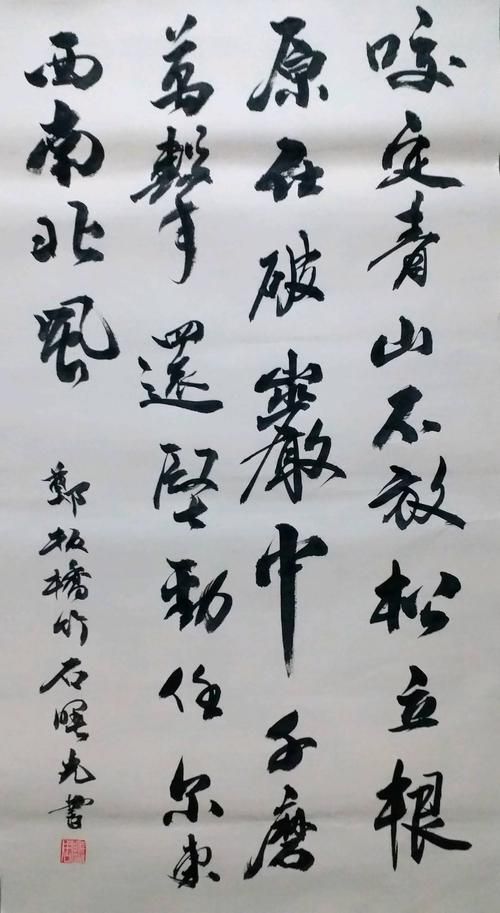 咬定青山不放松立根
原在破巖中千磨
萬擊還堅勁任尔東
西南北風
鄭板橋竹石曙光書